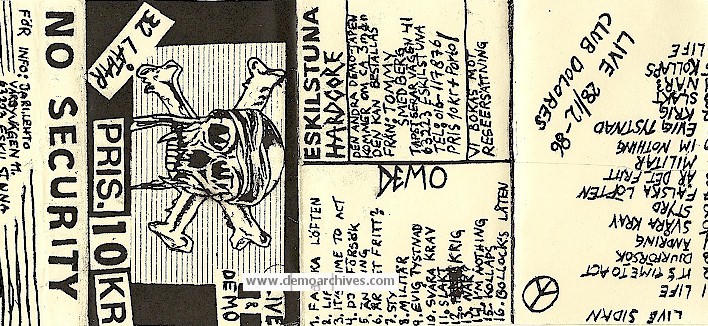 FÖR INFO: JARI LEHTO
NO SECURITY
32 LÅTAR
PRIS. 10 KR
LIVE
DEMO
ESKILSTUNA
HARDCORE
DEN ANDRA DEMOTAPEN
DEN KAN BESTÄLLAS
FRÅN: TOMMY
SMEDBERG
TAPETSERAR VÄGEN 41
63223 ESKILSTUNA
TEL. 016-117876
PRIS 10KR + PORTO!
VI BOKAS MOT
RESEERSÄTTNING
DEMO
1. FALSKA LÖFTEN
2. LIFE
3. ITS TIME TO ACT
4. DJURFÖRSÖK
5. ÄNDRING
6. ÄR DET FRITT?
7. STYRD
8. MILITÄR
9. EVIG TYSTNAD
10. SVÅRA KRAV
11. SLAKT
12. KRIG
13. NÄR?
14. IM NOTHING
15. KOLLAPS
16. BOLLOCKS LÅTEN
LIVE 28/12-86
CLUB DOLORES
LIVE SIDAN
LIFE
IT'S TIME TO ACT
DJURFÖRSÖK
ÄNDRING
SVÅRA KRAV
STYRD
FALSKA LÖFTEN
ÄR DET FRITT
MILITÄR
IM NOTHING
EVIG TYSTNAD
KRIG
SLAKT
NÄR?
KOLLAPS
LIFE
www.demoarchives.com